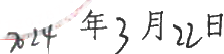 2024 年3月22日